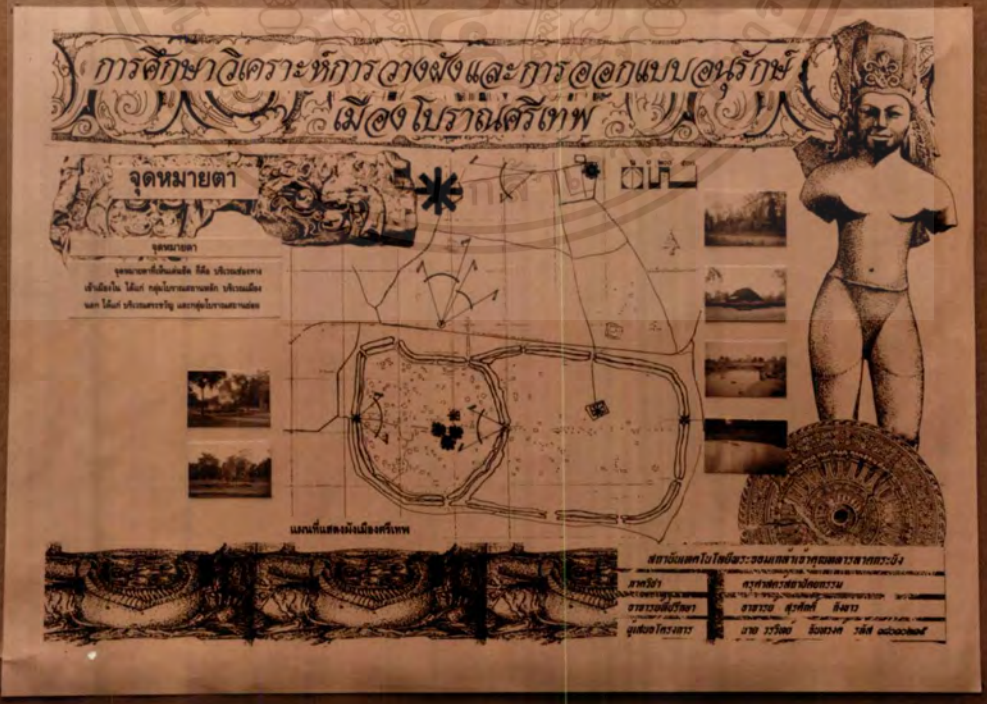 การศึกษาวิเคราะห์การวางผังและการออกแบบอนุรักษ์
เมืองโบราณศรีเทพ
จุดหมายตา
จุดหมายตา
จุดหมายตาที่เห็นเด่นชัด ก็คือ บริเวณช่องทาง
เข้าเมืองใน ได้แก่ กลุ่มโบราณสถานหลัก บริเวณเมือง
นอก ได้แก่ บริเวณสระขวัญ และกลุ่มโบราณสถานย่อย
แผนที่แสดงผังเมืองศรีเทพ
สถาบันเทคโนโลยีพระจอมเกล้าเจ้าคุณทหารลาดกระบัง
ภาควิชา ครุศาสตร์สถาปัตยกรรม
อาจารย์ที่ปรึกษา อาจารย์ สุรศักดิ์
ผู้เสนอโครงการ นาย รหัส